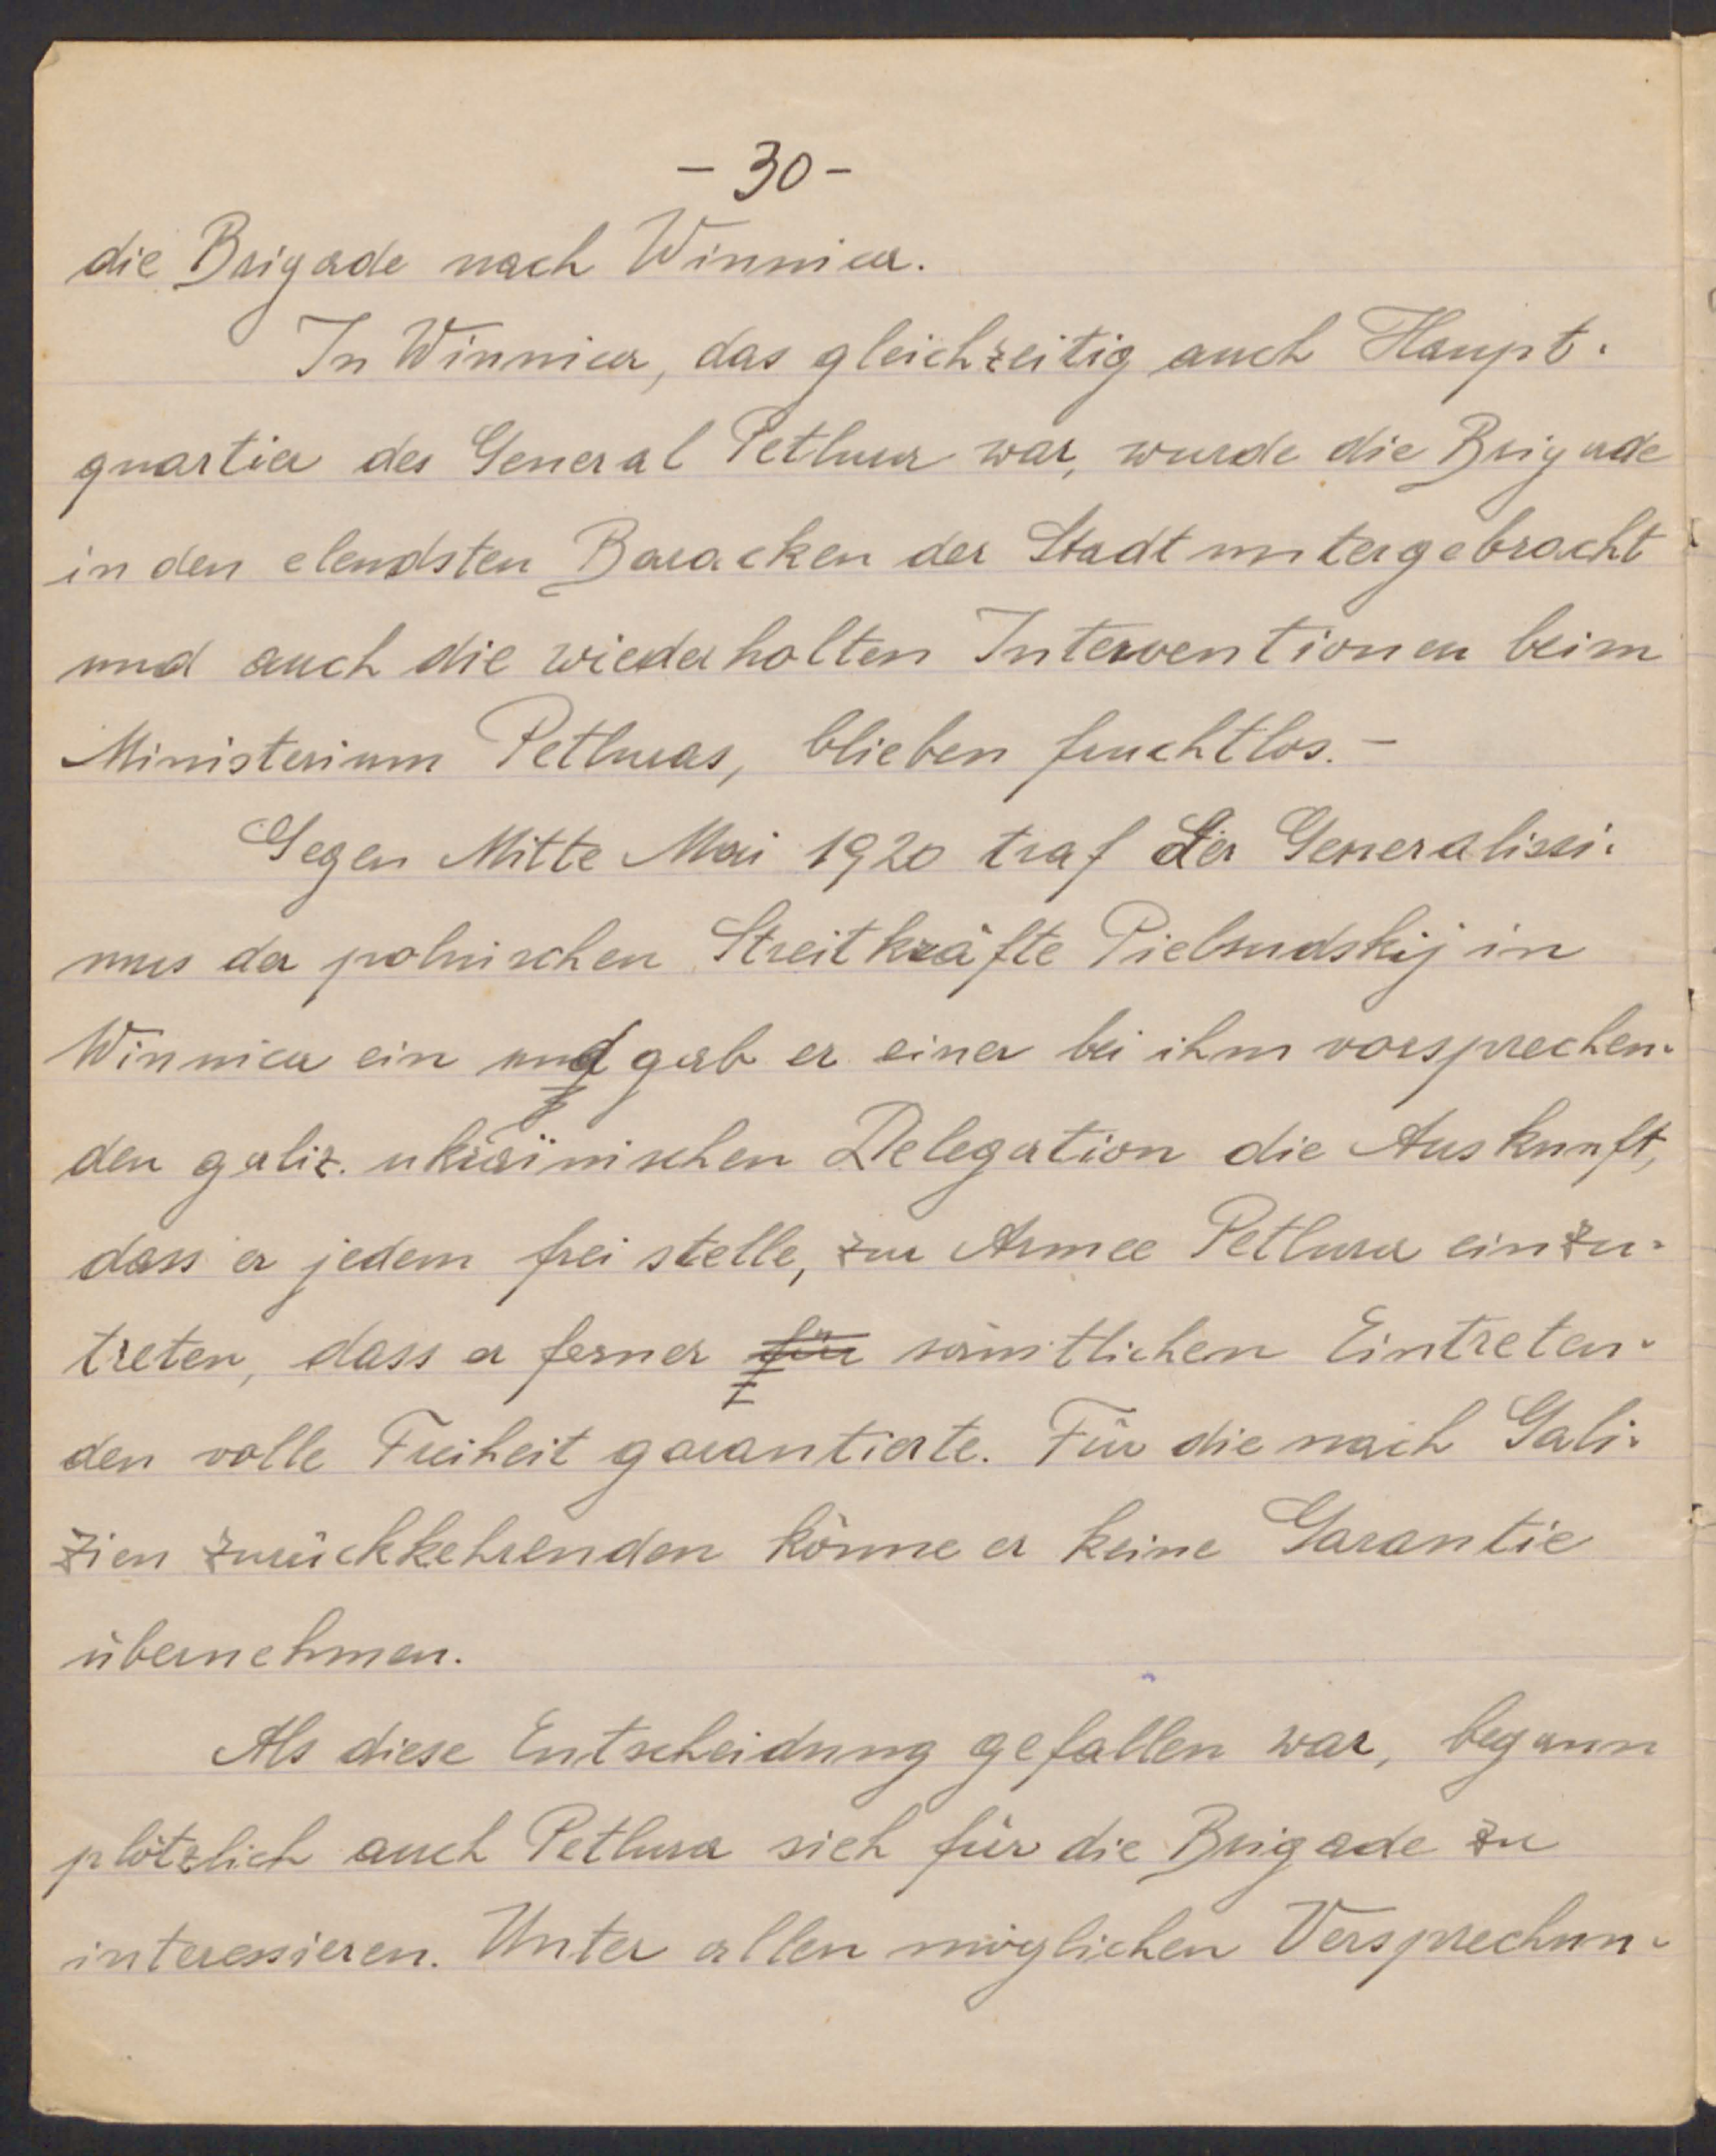 - 30 -
die Brigade nach Winnica.
In Winnica, das gleichzeitig auch Haupt-
quartier des General Petlura war, wurde die Brigade
in den elendsten Baracken der Stadt untergebracht
und auch die wiederholten Interventionen beim
Ministerium Petluras, blieben fruchtlos.-
Gegen Mitte Mai 1920 traf der Generalissi-
mus der polnischen Streitkräfte Pielsudskij in
Winnica ein und gab er einer bei ihm vorsprechen-
den galiz. ukraïnischen Delegation die Auskunft,
dass er jedem frei stelle, zur Armee Petlura einzu-
treten, dass er ferner für sämtlichen Eintreten-
den volle Freiheit garantierte. Für die nach Gali-
zien zurückkehrenden könne er keine Garantie
übernehmen.
Als diese Entscheidung gefallen war, begann
plötzlich auch Petlura sich für die Brigade zu
interessieren. Unter allen möglichen Versprechun-